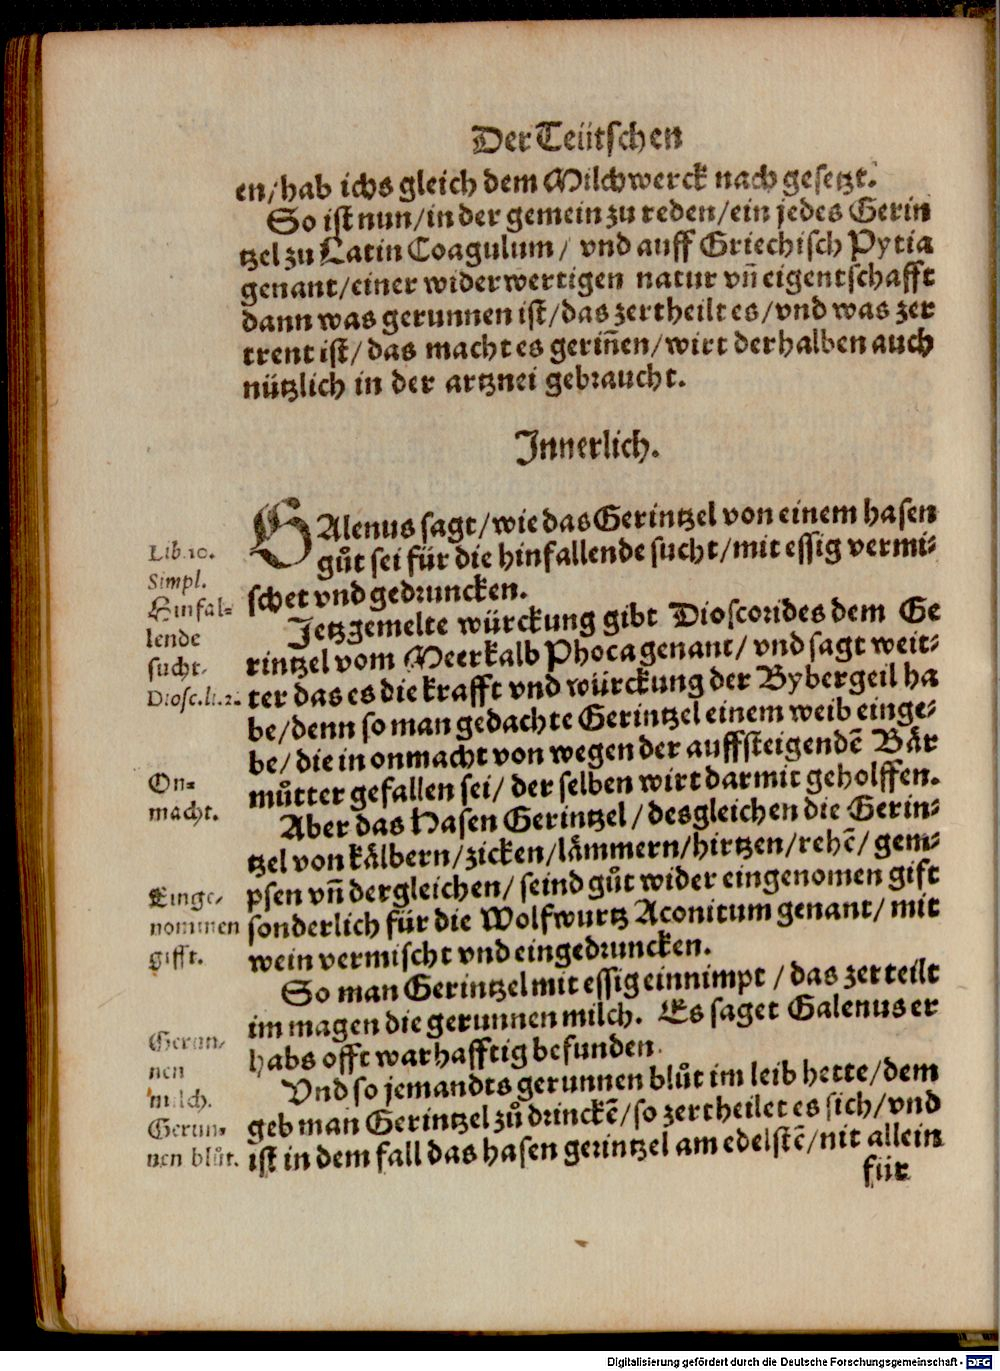 Der Teütschen
en/hab ichs gleich dem Milchwerck nach gesetzt.
So ist nun/in der gemein zu reden/ein jedes Gerin
tzel zu Latin Coagulum/ vnd auff Griechisch Pytia
genant/einer widerwertigen natur vñ eigentschafft
dann was gerunnen ist/das zertheilt es/vnd was zer
trent ist/ das macht es geriñen/wirt derhalben auch
nützlich in der artznei gebraucht.
Innerlich.
GAlenus sagt/wie das Gerintzel von einem hasen
gůt sei für die hinfallende sucht/mit essig vermi⸗
schet vnd gedruncken.
Jetzgemelte würckung gibt Dioscorides dem Ge
rintzel vom Meerkalb Phoca genant/ vnd sagt weit⸗
ter das es die krafft vnd würckung der Bybergeil ha
be/denn so man gedachte Gerintzel einem weib einge⸗
be/ die in onmacht von wegen der auffsteigendē Bär
můtter gefallen sei/ der selben wirt darmit geholffen.
Aber das Hasen Gerintzel/desgleichen die Gerin⸗
tzel von kälbern/zicken/lämmern/hirtzen/rehē/gem⸗
psen vñ dergleichen/ seind gůt wider eingenomen gift
sonderlich für die Wolfwurtz Aconitum genant/ mit
wein vermischt vnd eingedruncken.
So man Gerintzel mit essig einnimpt /das zerteilt
im magen die gerunnen milch. Es saget Galenus er
habs offt warhafftig befunden.
Vnd so jemandts gerunnen blůt im leib hette/dem
geb man Gerintzel zů drinckē/so zertheilet es sich/vnd
ist in dem fall das hasen gerintzel am edelstē/nit allein
für
Lib.10.
Simpl.
Hinfal⸗
lende
sucht.
Diosc.li.2.
On⸗
macht.
Einge⸗
nommen
gifft.
Gerun⸗
nen
milch.
Gerun⸗
nen blůt.
Digitalisierung gefördert durch die Deutsche Forschungsgemeinschaft - DFG